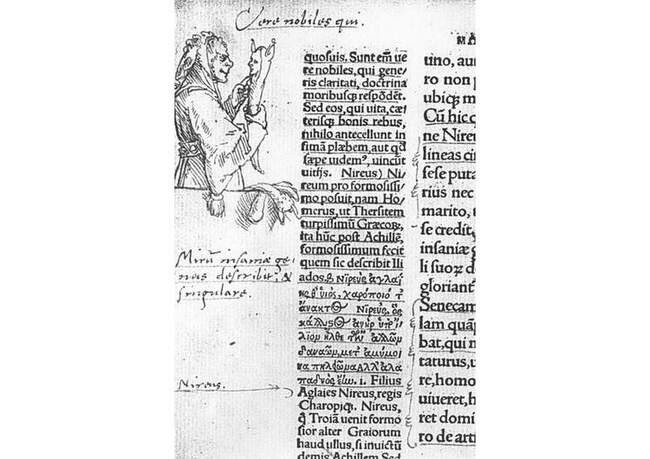 Vere nobiles qui.
Mirū insaniæ ge
nus describit, &
singulare.
Nireus.
quosuis. Sunt em̄ ue
re nobiles, qui gene
ris claritati, doctrina
moribusq̃ respōdēt.
Sed eos, qui uita, cæ
terisq̃ bonis rebus,
nihilo antecellunt in
simā plæbem, aut qđ
sæpe uidem⁹, uincūt
uitijs. Nireus) Ni/
reum pro formosissi
mo posuit, nam Ho/
merus, ut Thersitem
turpissimū Græcoꝝ,
ita hūc post Achillē,
formosissimum fecit
quem sic describit Ili
ados.β νιρεὺς ἀγλαί
ης υἱὸς, χαρόποιό τ'
ἄνακτος νιρεὺς, ὃς
ἀνὴρ ὑπ' ἴ/
λιον ἦλθε τῶν ἄλλων
δαναῶν, μετ' ἀμύμο
να ἀλλ' ἀλα
παδνὸς ἔην. i. Filius
Aglaies Nireus, regis
Charopiq̃. Nireus,
q̃ Troiā uenit formo
sior alter Graiorum
haud ullus, si inuictū
demis Achillem Sed
MA
tino, au
ro non p
ubiq̃ m
Cū hic q
ne Nireu
lineas cir
sese puta
rius nec
marito, t
se credit,
insaniæ g
li suoꝝ d
gloriant
Senecam
lam quāp
bat, qui n
taturus, u
re, homo
uiueret, h
ret domi
ro de art